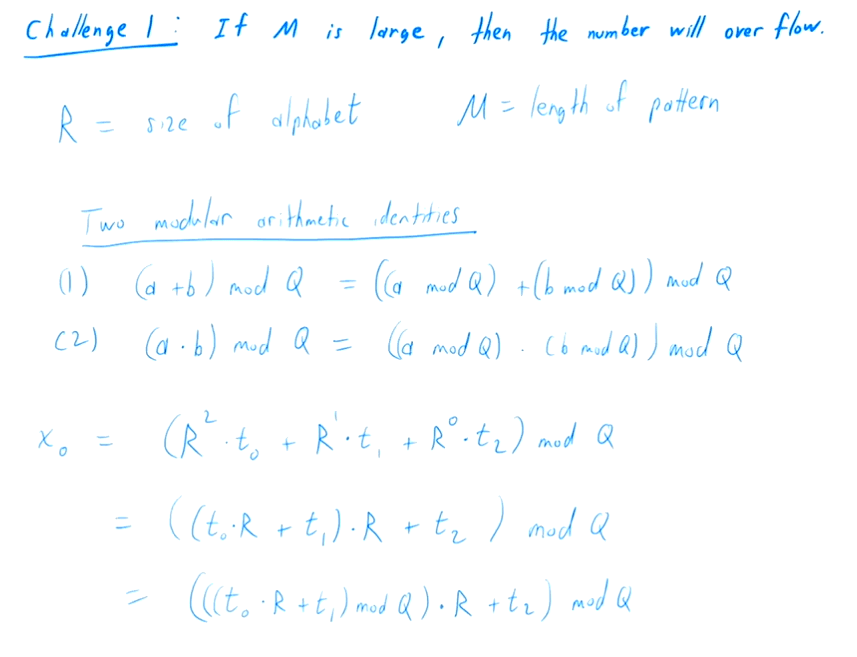 Challenge 1: If M is large, then the number will over flow.
R = size of alphabet M = length of pattern
Two modular arithmetic identities
(1) (a + b) mod Q = ((a mod Q) + (b mod Q)) mod Q
(2) (a · b) mod Q = ((a mod Q) · (b mod Q)) mod Q
x₀ = (R² · t₀ + R¹ · t₁ + R⁰ · t₂) mod Q
= ((t₀ · R + t₁) · R + t₂) mod Q
= (((t₀ · R + t₁) mod Q) · R + t₂) mod Q